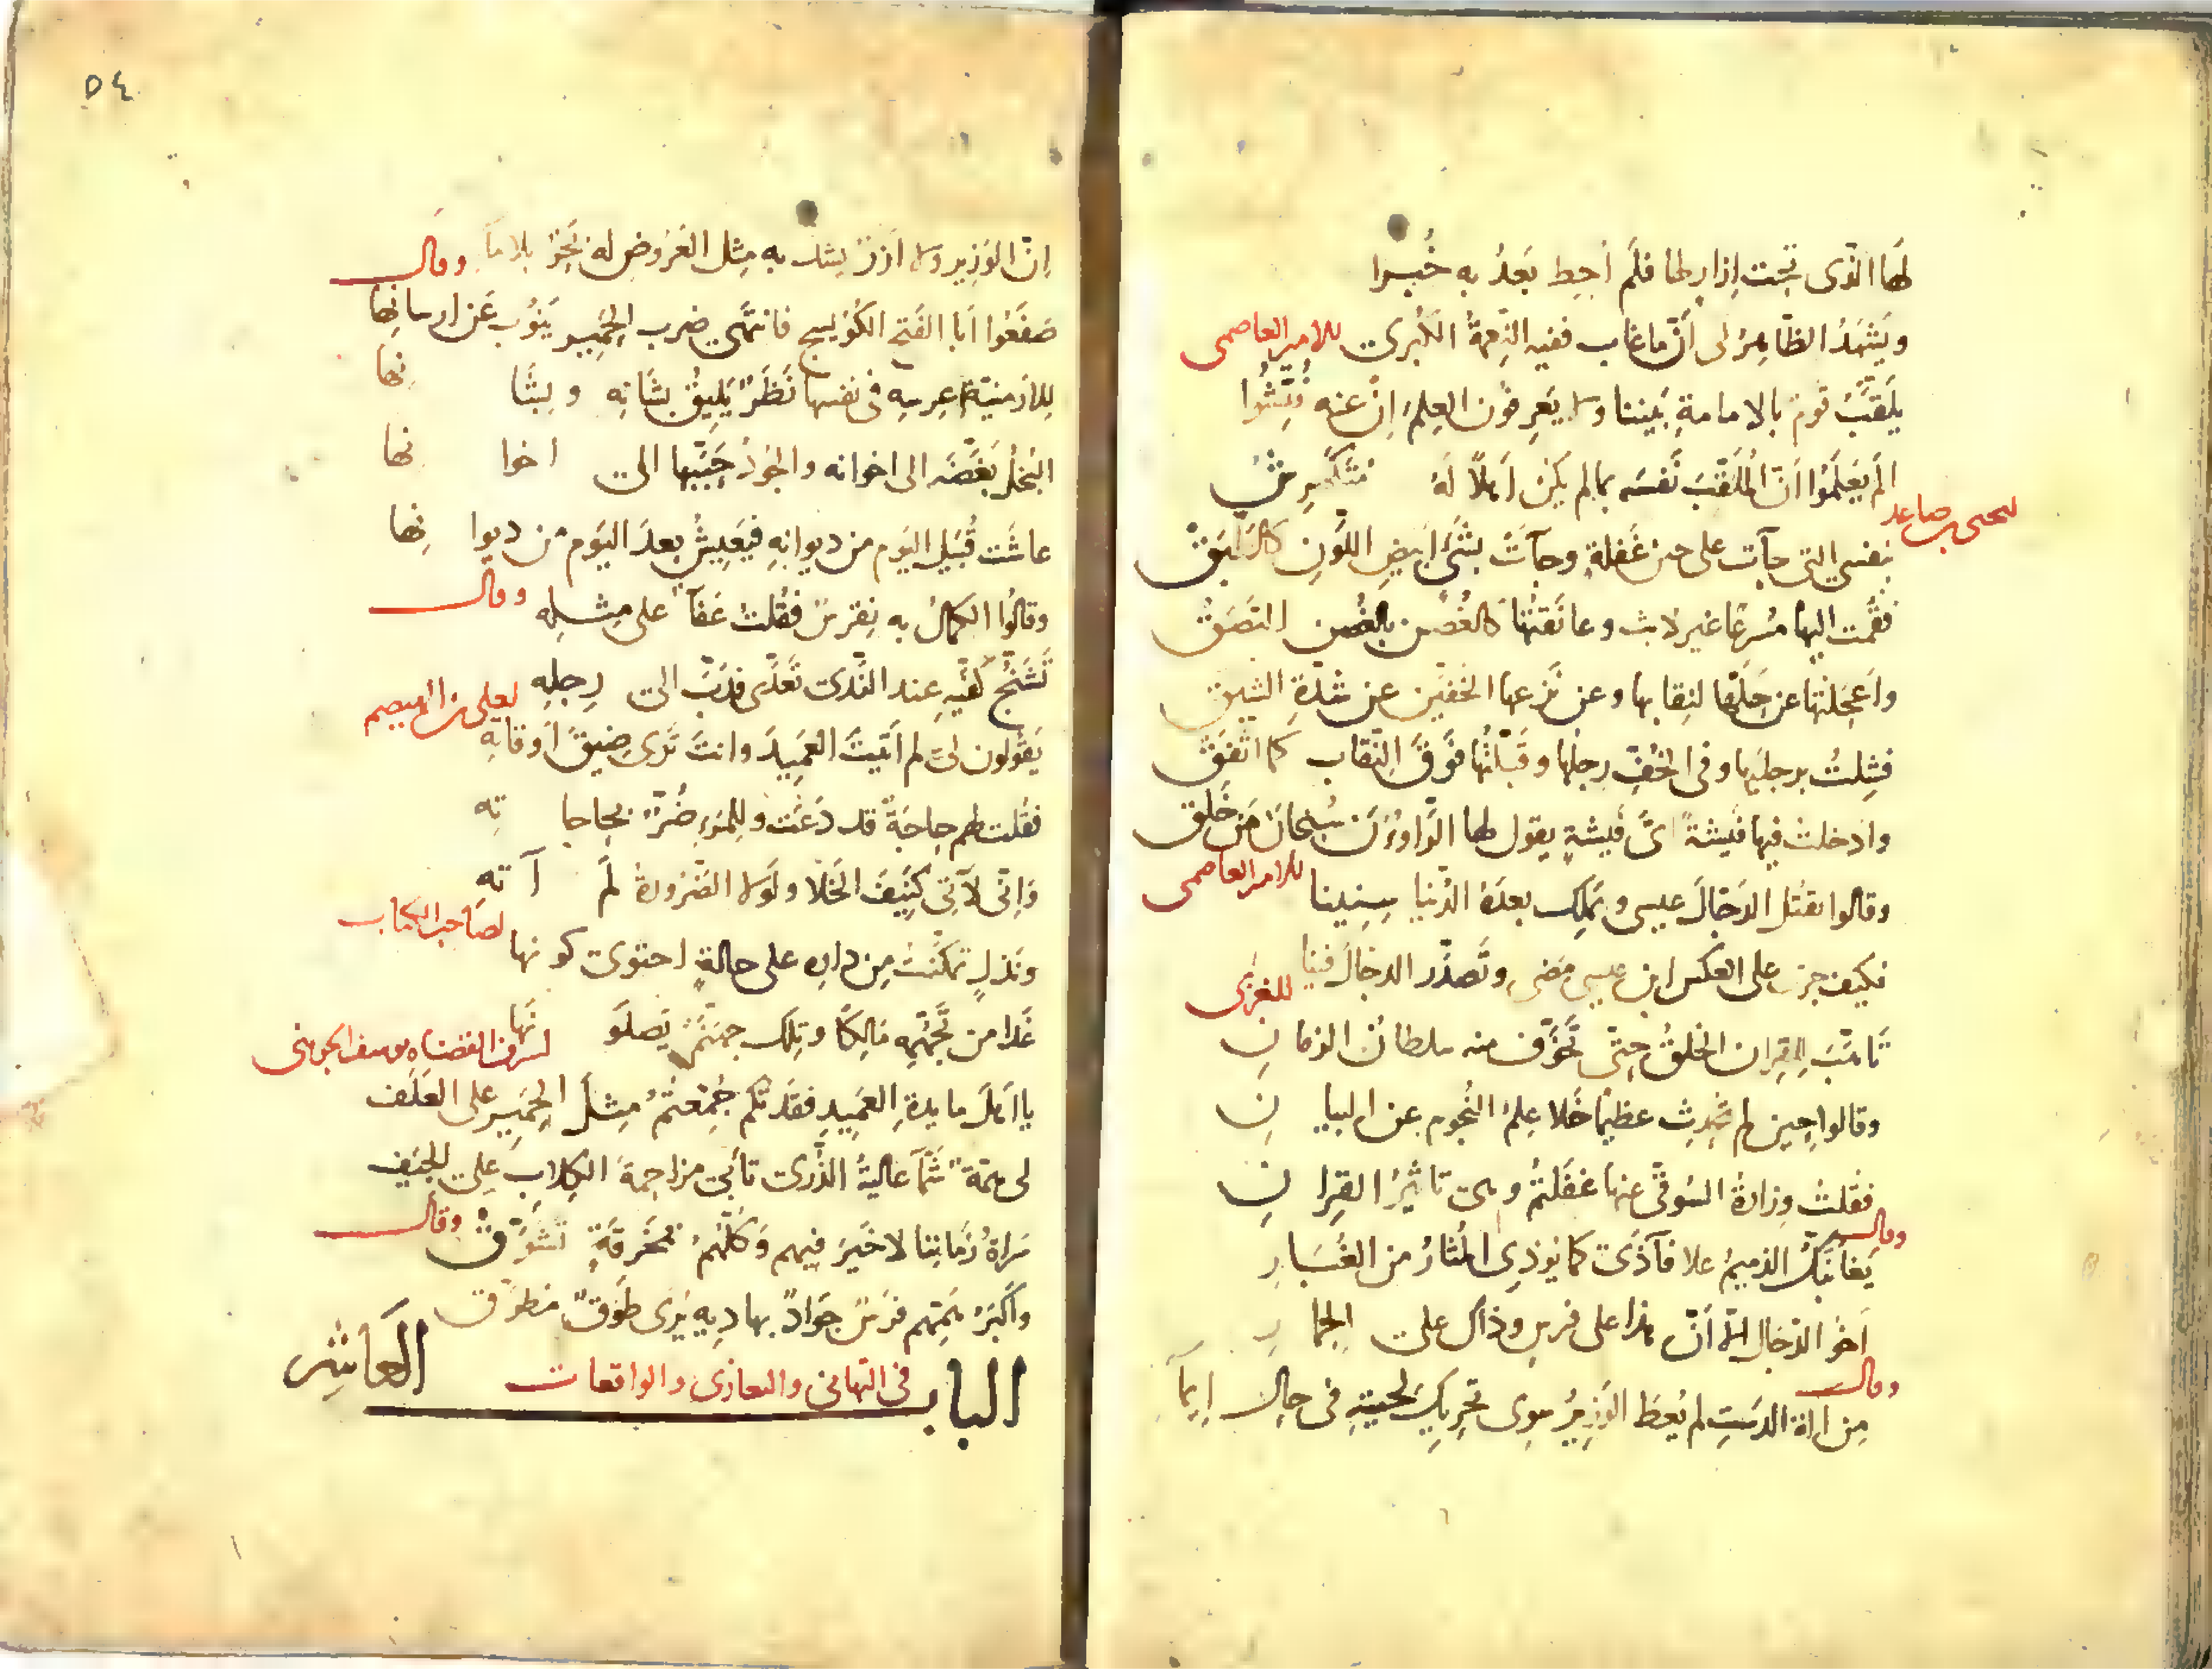 لها الذى تحت إزارٍ لها فلم أحط بعدُ به خُبرا
ويَشهدُ الظاهرُ لى أنّ ما غاب ففيه النِعمةُ الكُبرى للامير العاصمى
يلقّبُ قومٌ بالامامةِ بَيننا ولا يَعرِفون العِلمَ إن عنه فُتِّشُوا
ألم يَعلَمُوا أنّ المُلَقِّبَ نَفسَه بما لم يكن أهلًا لَهُ
ليحيى بن صاعد
بنفسى التى جآت على حين غَفلةٍ وجآت بشَىءٍ ابيضِ اللَّونِ كالـ
فقمت اليها مُسرعًا غير لابث وعانقتُها كالغُصن بالغُصن التصق
واعجلتها عن حلّها لنِقابها وعن نزعها الخفّين عن شدّةِ الشبق
فشِلتُ برجليها وفى الخُفّ رجلها وقبّلتُها فوقَ النّقاب كما اتّفق
وادخلتُ فيها فيشةً اىَّ فيشةٍ يقول لها الرّاؤون سُبحان مَن خَلَق
للامير العاصمى
وقالوا يقتُل الدجّالَ عيسى ويملك بعدَهُ الدّنيا سِنِينا
فكيف جرى على العكس ابن عيسى مضى وتَصدّر الدجّالُ فينا للغزى
تأهّبَ للقِران الخلقُ حتّى تخوّف منه سلطانُ الزمانِ
وقالوا حين لم يُحدِث عظيمًا خَلا عِلمُ النُجوم عن البيانِ
فقلتُ وِزارةُ السُوقىّ عنها غفلتُم وهى تأثيرُ القِرانِ
وقال
الذميمُ علا فآذى كما يُؤذِى المُثارُ من الغُبارِ
أخو الدّجّال الّا أنّ هذا على فرسٍ وذاك على الحمارِ
وقال
مِن الة الدَستِ لم يُعطَ الوَزِيرُ سوى تحريكِ لحيتِهِ فى حالِ إيمآءِ
٥٤
إنّ الوَزِيرَ ولا أزرٌ يشدّ به مِثل العَروض له بَحرٌ بلا مآءِ وقال
صَفَعُوا أبا الفَتح الكُوَيسج فانتمى ضرب الحَمِير يَنُوب عَن ارسانِها
للارمنيّة فى نفسها نَظَرٌ يَلِيقُ بشَانِه وبِشَانِها
البُخلُ بَغّضَه الى اخوانه والجُودُ حَبَّبها الى اخوانها
عاشَت قُبَيل اليَوم من ديوانِهِ فيَعِيشُ بعدَ اليَوم من ديوانِها
وقالُوا الكمالُ به نِقرسٌ فقُلتُ عَفآءٌ على مِثلِه وقال
تَشَنُّج كفّيهِ عند النّدى تَعَدّى فدَبّ الى رِجلِهِ لعلى بن الهيصم
يَقُولون لى لم أتَيتَ العَمِيدَ وانتَ تَرى ضِيقَ أوقاتِهِ
فقُلت لهم حاجَةٌ قد دَعَت وللمَرءِ ضُرٌّ بحاجاتِه
وَإنّى لآتِى كَنِيفَ الخَلا ولَولا الضَرُورةُ لَم آتِه
لصاحب الكتاب
ونَذلٍ تمكّنتُ مِن دارِه على حالةٍ احتوى كونها
غَدا من تَجَهُّمِه مالِكًا وتِلك جَهَنَّمُ يَصلَونَها
لشرف القضاة يوسف الجوينى
يا أهلَ مايدةِ العَمِيدِ فقَدتُكُم جُمِّعتُمُ مِثلَ الحَمِيرِ على العَلَف
لى هِمّةٌ شَمّآ عاليةُ الذُّرى تأبَى مزاحمةَ الكِلابِ على الجِيَف
سَراةُ زَمانِنا لا خَيرَ فيهم وَكلّهمُ بمَخرقةٍ تَسَوّق وقال
واكبَرُ هَمِّهم فرَسٌ جَوادٌ بهادِيهِ يُرَى طَوقٌ مطوّق
الباب العاشر فى التهانى والتعازى والواقعات